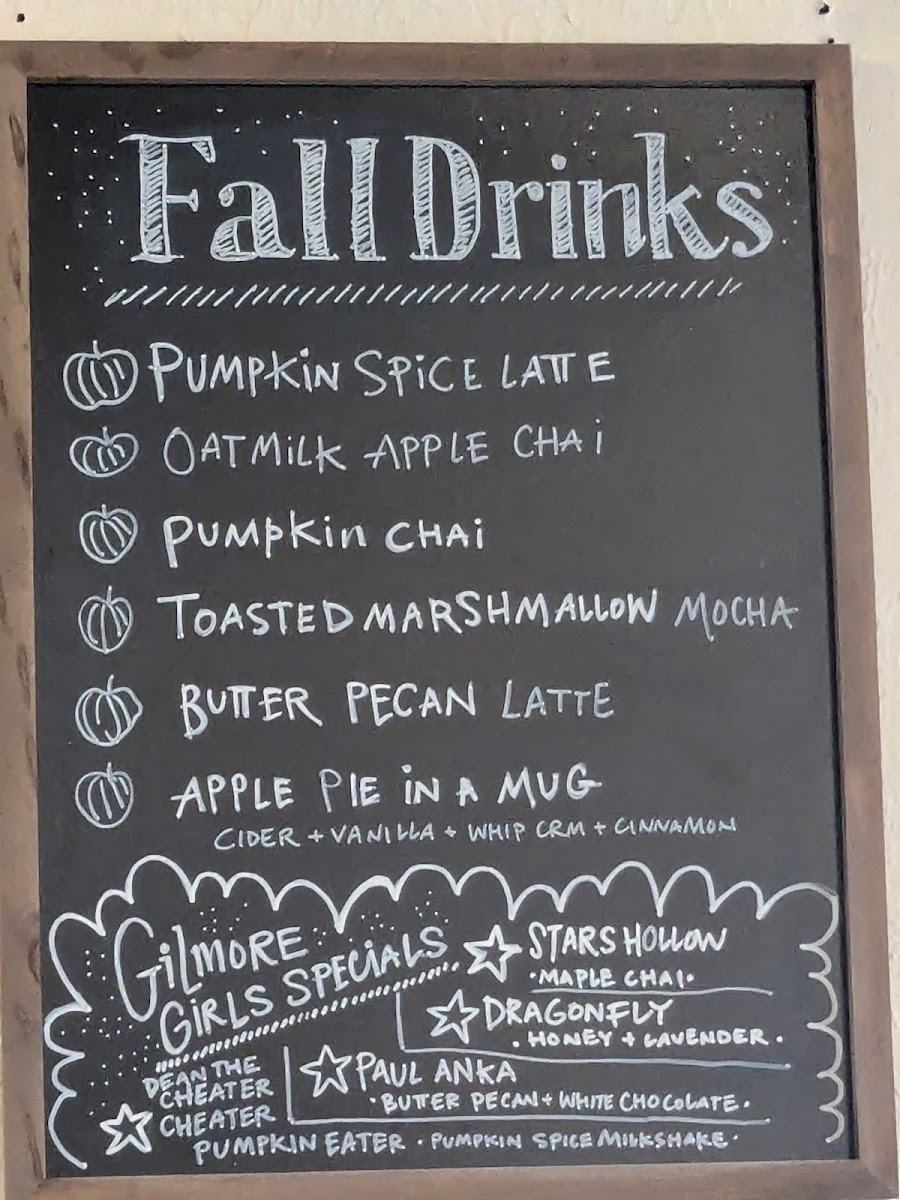 Fall Drinks
PUMPKIN SPICE LATTE
OATMILK APPLE CHAI
PUMPKIN CHAI
TOASTED MARSHMALLOW MOCHA
BUTTER PECAN LATTE
APPLE PIE IN A MUG
CIDER + VANILLA + WHIP CRM + CINNAMON
GILMORE
GIRLS SPECIALS
STARS HOLLOW
· MAPLE CHAI ·
DRAGONFLY
· HONEY + LAVENDER ·
PAUL ANKA
· BUTTER PECAN + WHITE CHOCOLATE ·
DEAN THE
CHEATER
CHEATER
PUMPKIN EATER · PUMPKIN SPICE MILKSHAKE ·